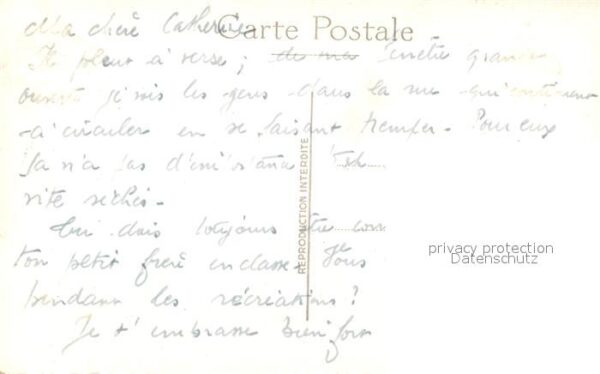 Carte Postale
Ma chère Catherine
Il pleut à verse ; de ma fenêtre grande
ouverte je vois les gens dans la rue qui continuent
à circuler en se faisant tremper. Pour eux
ça n'a pas d'importance
vite séchés.
Tu dois toujours être
ton petit frère en classe. Vous
pendant les récréations ?
Je t'embrasse bien fort
REPRODUCTION INTERDITE
privacy protection
Datenschutz